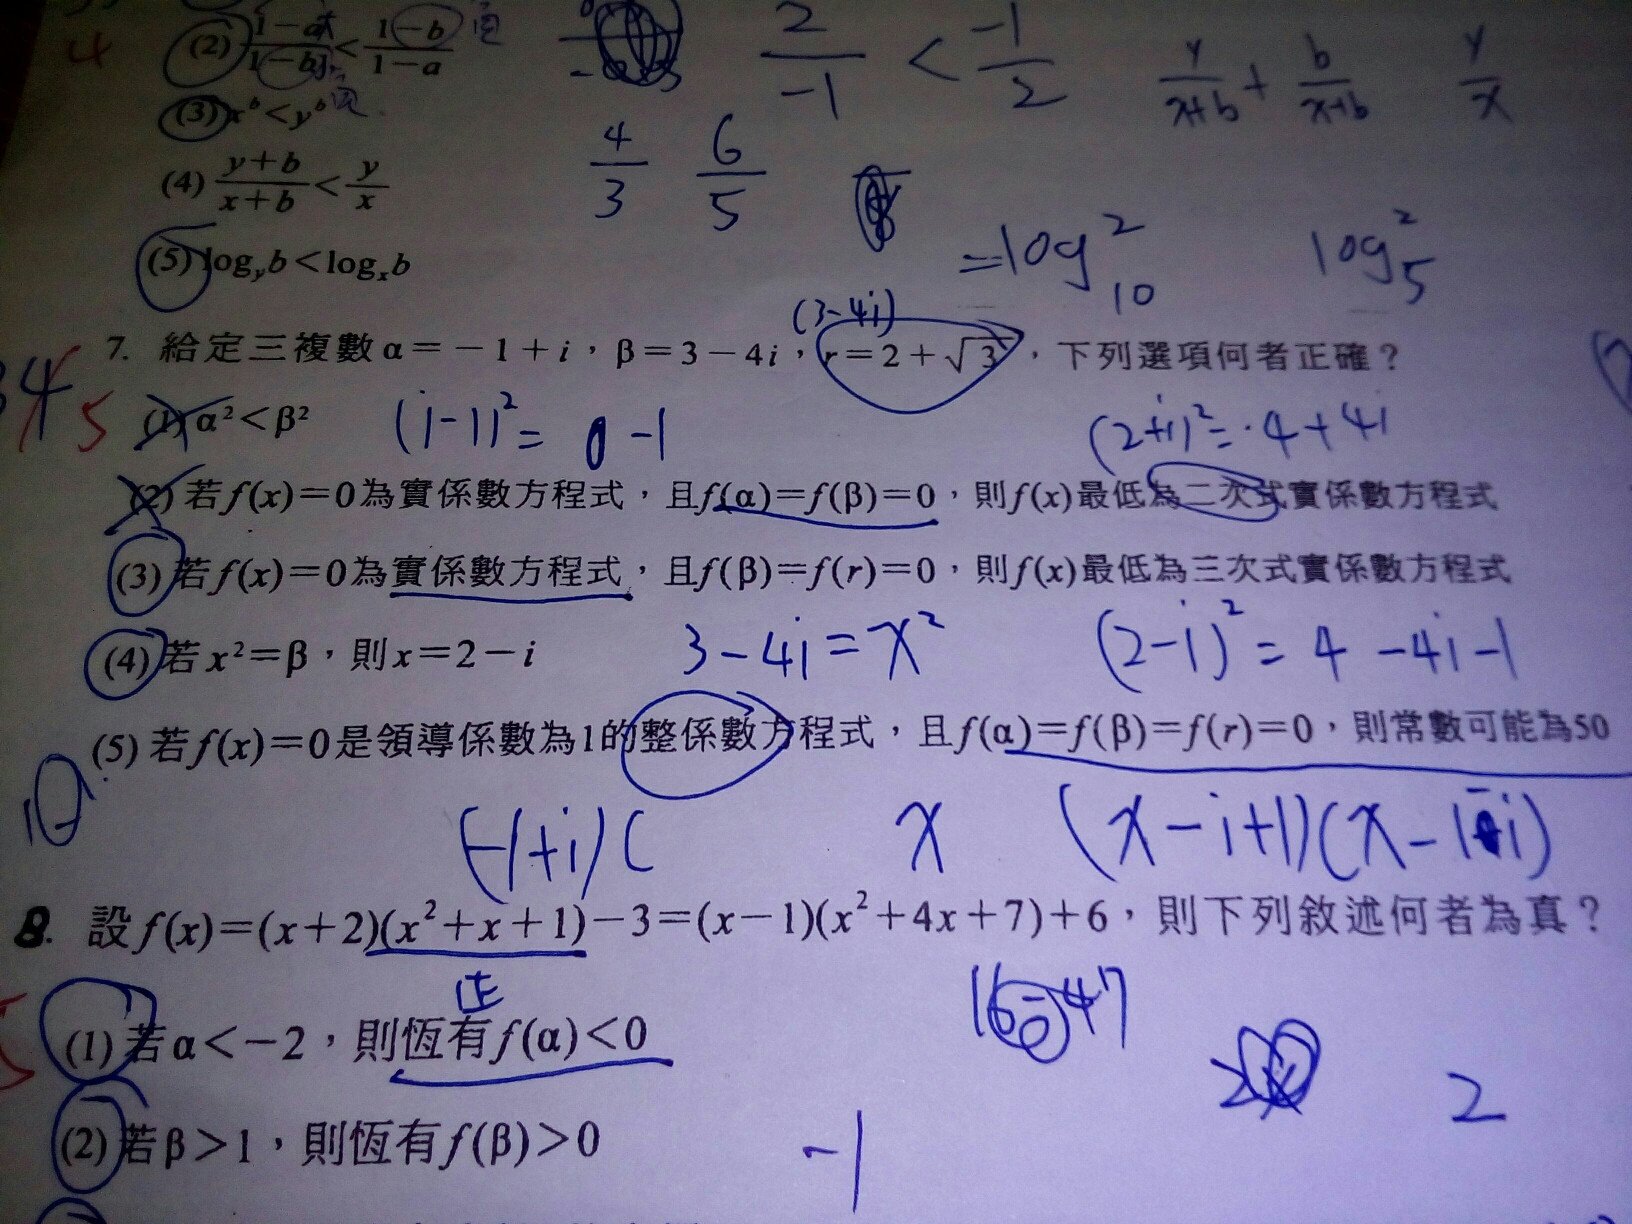 (2) 1-a/1-b < 1-b/1-a
2/-1 < -1/2
y/x+b + b/x+b y/x
(3) x^b < y^b
4/3 6/5
(4) y+b/x+b < y/x
(5) log_y b < log_x b
=log 2 10 log 2 5
(3-4i)
7. 給定三複數α=-1+i,β=3-4i,r=2+√3,下列選項何者正確?
(1) α²<β² (i-1)²= -1 (2+i)²=4+4i
(2) 若f(x)=0為實係數方程式,且f(α)=f(β)=0,則f(x)最低為二次式實係數方程式
(3) 若f(x)=0為實係數方程式,且f(β)=f(r)=0,則f(x)最低為三次式實係數方程式
(4) 若x²=β,則x=2-i 3-4i=x² (2-i)²=4-4i-1
(5) 若f(x)=0是領導係數為1的整係數方程式,且f(α)=f(β)=f(r)=0,則常數可能為50
(-1+i)( x (x-i+1)(x-1 i)
8. 設f(x)=(x+2)(x²+x+1)-3=(x-1)(x²+4x+7)+6,則下列敘述何者為真?
正
(1) 若α<-2,則恆有f(α)<0
2
(2) 若β>1,則恆有f(β)>0
-1